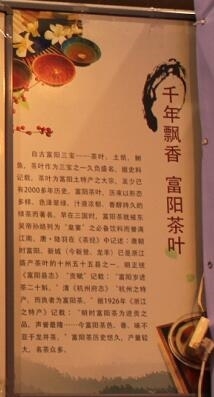 千年飘香 富阳茶叶
自古富阳三宝——茶叶、土纸、鲥
鱼，茶叶作为三宝之一久负盛名。据史料
记载，茶叶为富阳土特产之大宗，至少已
有2000多年历史。富阳茶叶，历来以形态
多样、色泽翠绿、汁液浓郁、香醇持久的
绿茶而著名。早在三国时，富阳茶就被东
吴帝孙皓列为"皇宴"之必备饮料而誉满
江南。唐·陆羽在《茶经》中记述：唐朝
时富阳、新城（今新登、龙羊）已是浙江
盛产茶叶的十州五十五县之一。明正统
《富阳县志》"贡赋"记载："富阳岁进
茶二十斤。"清《杭州府志》"杭州之特
产，而良者为富阳茶。"据1926年《浙江
之特产》记载："明时富阳茶为进贡之
品，声誉最隆——今富阳茶色、香、味不
亚于龙井茶。"富阳茶历史悠久，产量较
大，名茶众多。